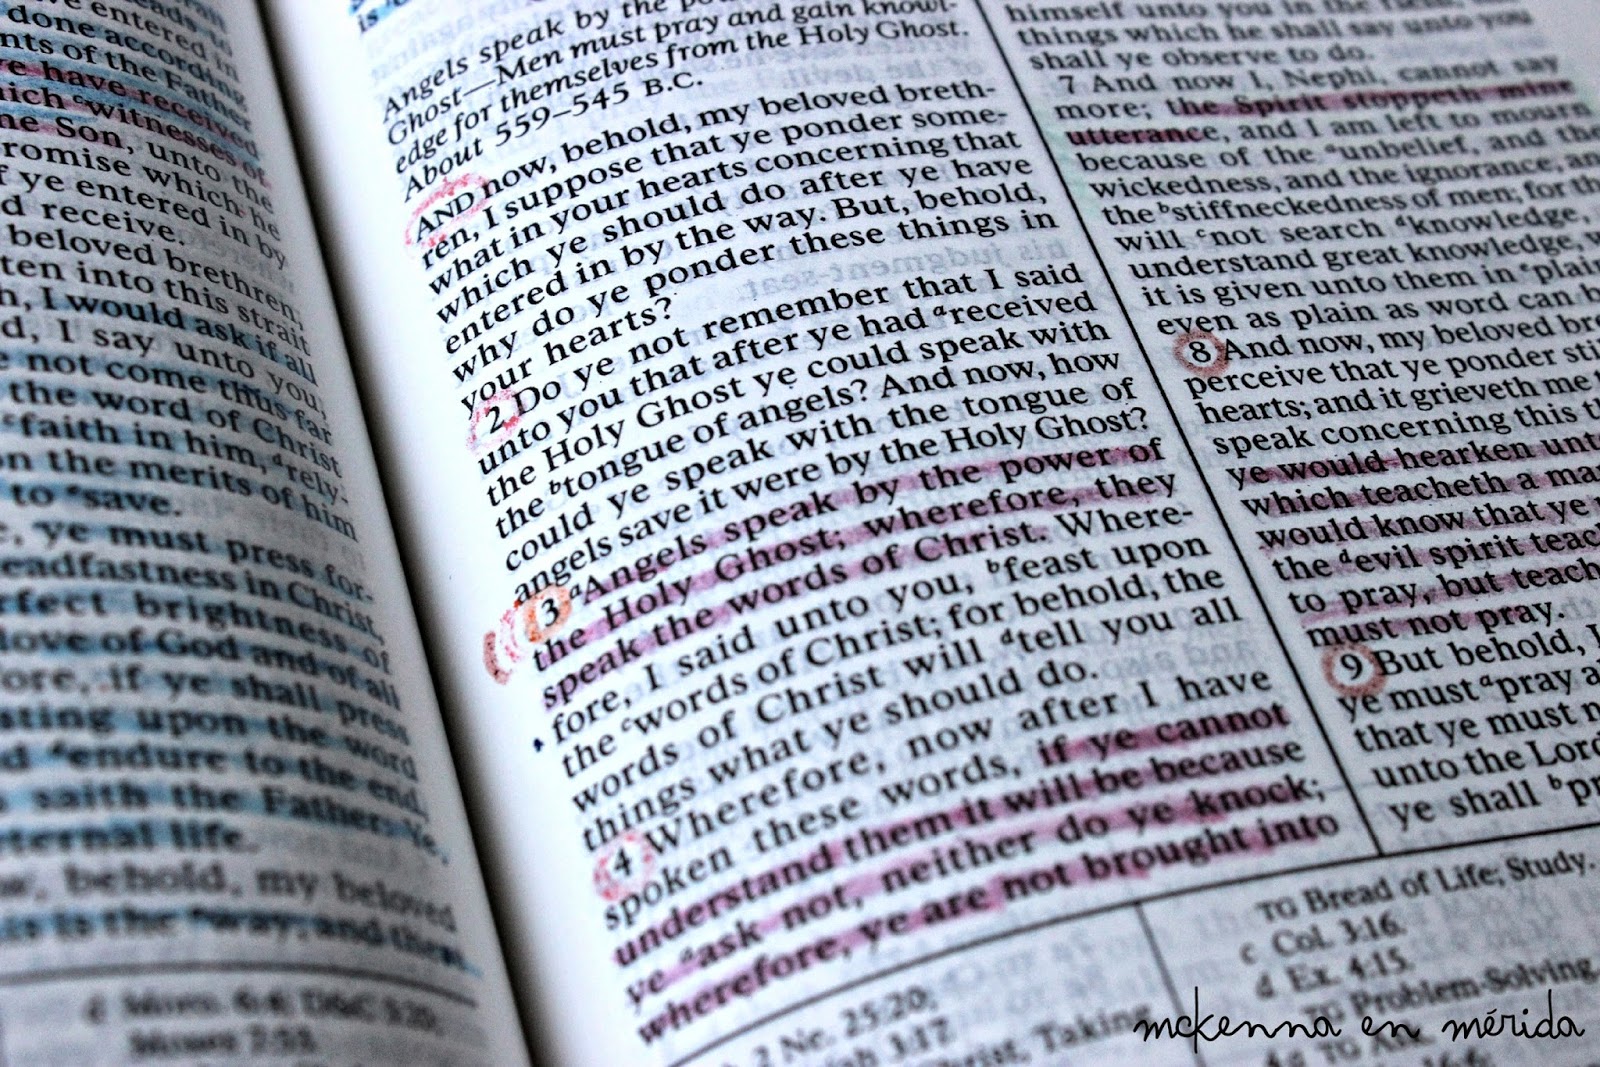 done according
nts of the Father
ve have received
hich ᶜwitnesses of
he Son, unto the
romise which he
f ye entered in by
d receive.
beloved brethren,
ten into this strait
h, I would ask if all
d, I say unto you,
e not come thus far
the word of Christ
ᶜfaith in him, ᵈrely-
on the merits of him
to ᵉsave.
e, ye must press for-
eadfastness in Christ,
rfect brightness of
love of God and of all
fore, if ye shall press
sting upon the word
d ᵈendure to the end,
s saith the Father: Ye
ternal life.
w, behold, my beloved
is is the way; and there
Angels speak by the
Ghost—Men must pray and gain knowl-
edge for themselves from the Holy Ghost.
About 559–545 B.C.
AND now, behold, my beloved breth-
ren, I suppose that ye ponder some-
what in your hearts concerning that
which ye should do after ye have
entered in by the way. But, behold,
why do ye ponder these things in
your hearts?
2 Do ye not remember that I said
unto you that after ye had ᵃreceived
the Holy Ghost ye could speak with
the ᵇtongue of angels? And now, how
could ye speak with the tongue of
angels save it were by the Holy Ghost?
3 ᵃAngels speak by the power of
the Holy Ghost; wherefore, they
speak the words of Christ. Where-
fore, I said unto you, ᵇfeast upon
the ᶜwords of Christ; for behold, the
words of Christ will ᵈtell you all
things what ye should do.
4 Wherefore, now after I have
spoken these words, if ye cannot
understand them it will be because
ye ᵃask not, neither do ye knock;
wherefore, ye are not brought into
2 Ne. 25:20;
3:17.
Christ, Taking
himself unto you in the
things which he shall say unto you
shall ye observe to do.
7 And now I, Nephi, cannot say
more; the Spirit stoppeth mine
utterance, and I am left to mourn
because of the ᵃunbelief, and the
wickedness, and the ignorance, and
the ᵇstiffneckedness of men; for the
will ᶜnot search ᵈknowledge,
understand great knowledge, w
it is given unto them in ᵉplain
even as plain as word can b
8 And now, my beloved bre
perceive that ye ponder sti
hearts; and it grieveth me t
speak concerning this th
ye would hearken unto
which teacheth a ma
would know that ye
the ᵈevil spirit teac
to pray, but teach
must not pray.
9 But behold, I
ye must ᵃpray a
that ye must n
unto the Lord
ye shall ᵇpr
TG Bread of Life; Study.
c Col. 3:16.
d Ex. 4:15.
TG Problem-Solving.
mckenna en mérida